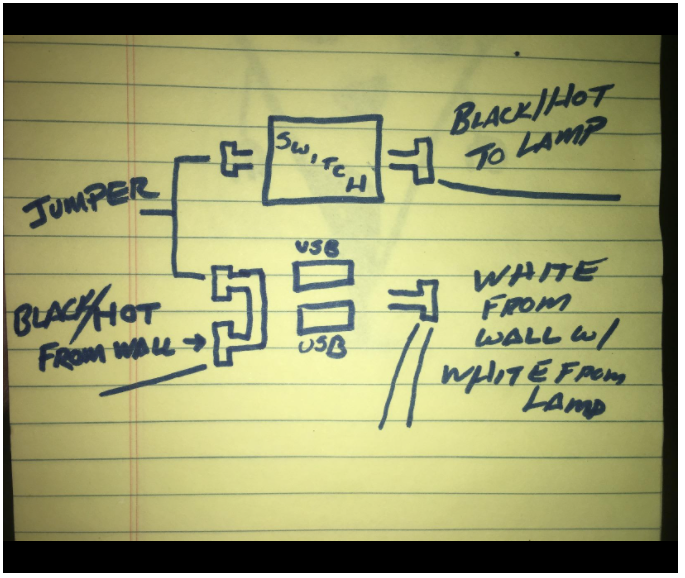 BLACK/HOT
TO LAMP
SWITCH
JUMPER
USB
USB
BLACK/HOT
FROM WALL
WHITE
FROM
WALL W/
WHITE FROM
LAMP